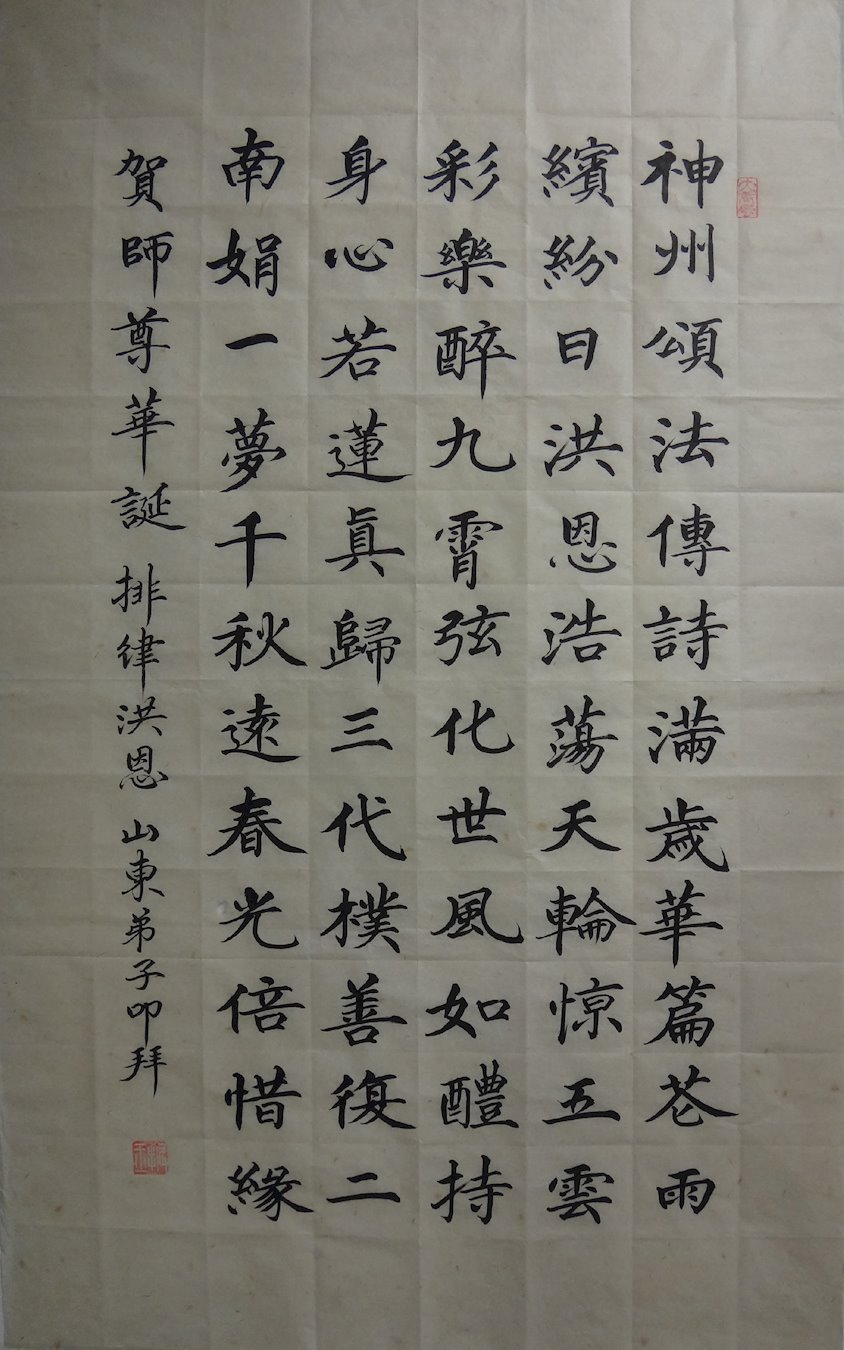 神州頌法傳詩滿歲華篇花雨
繽紛日洪恩浩蕩天輪惊五雲
彩樂醉九霄弦化世風如醴持
身心若蓮真歸三代樸善復二
南娟一夢千秋遠春光倍惜緣
賀師尊華誕 排律洪恩 山東弟子叩拜